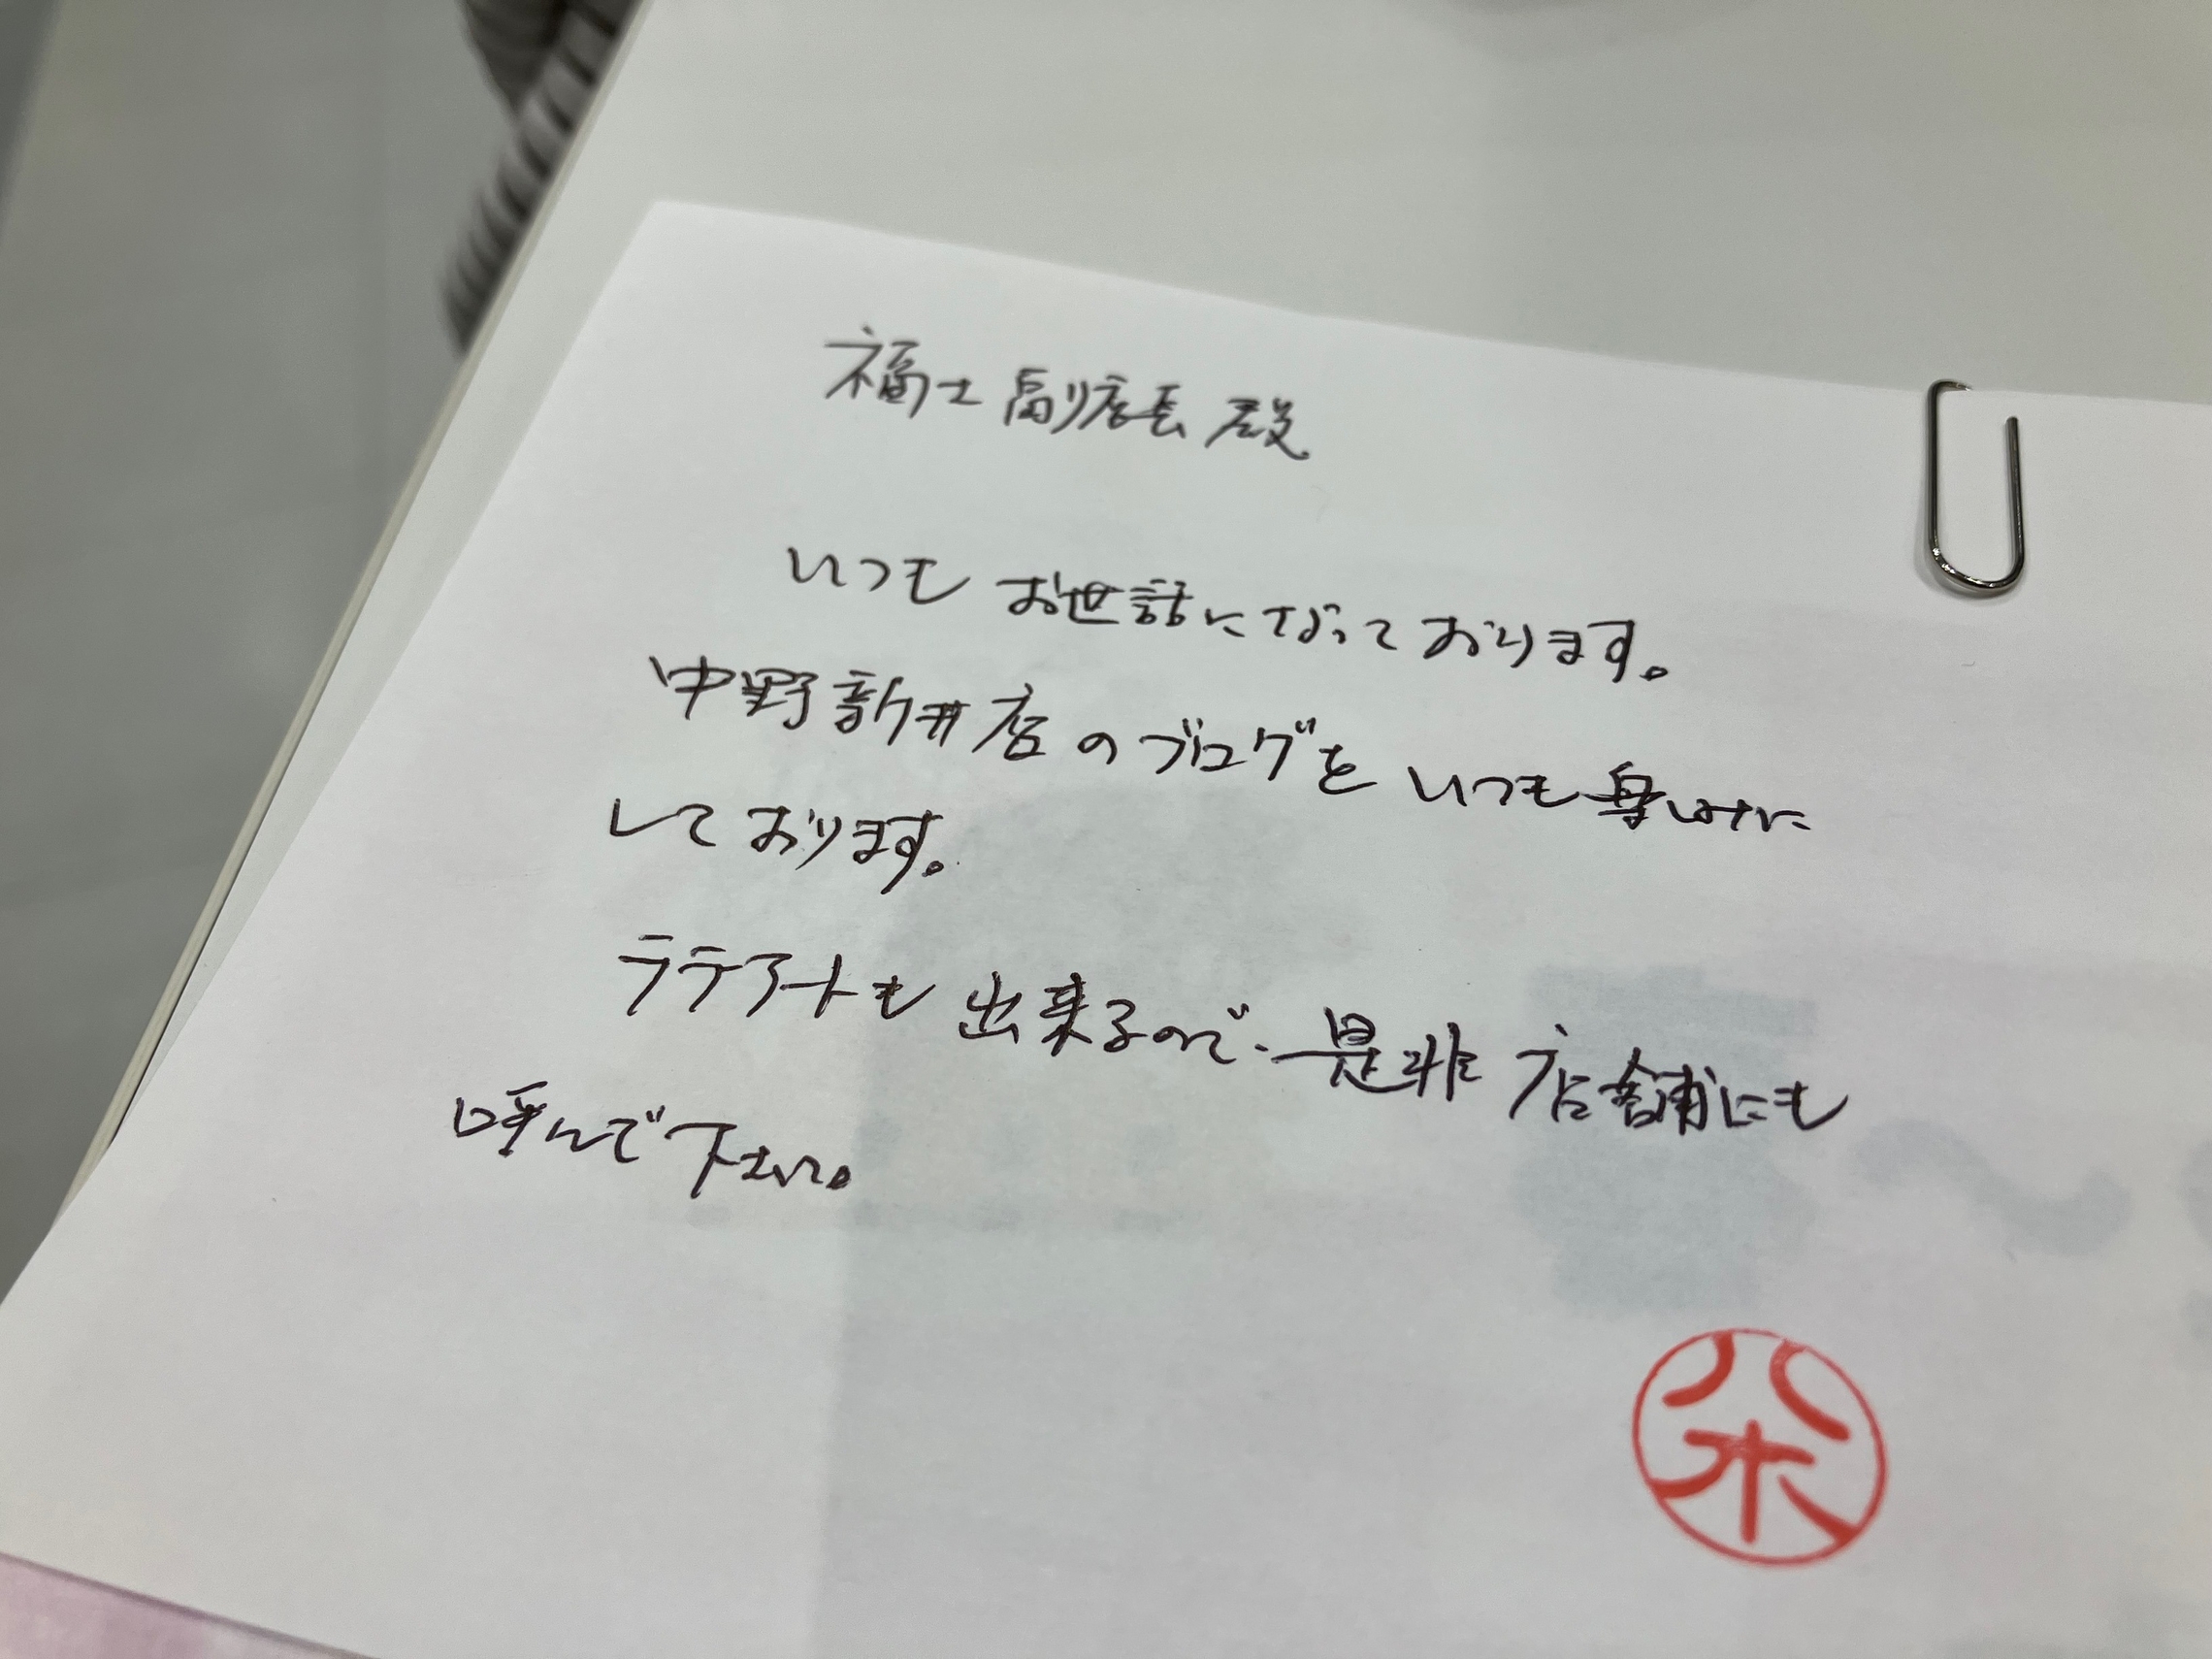 福士副店長殿
いつもお世話になっております。
中野新井店のブログをいつも楽しみに
しております。
ラテアートも出来るので、是非店舗にも
呼んで下さい。
八木